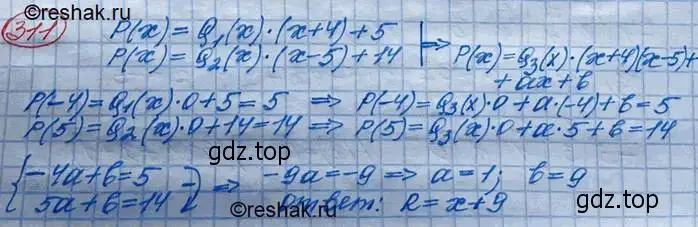 ©reshak.ru
311 P(x) = Q₁(x)·(x+4)+5
P(x) = Q₂(x)·(x-5)+14 | ⇒ P(x)=Q₃(x)·(x+4)(x-5)+
+ax+b
P(-4)=Q₁(x)·0+5=5 ⇒ P(-4)=Q₃(x)·0+a·(-4)+b=5
P(5)=Q₂(x)·0+14=14 ⇒ P(5)=Q₃(x)·0+a·5+b=14
gdz.top
gdz.top
{-4a+b=5
5a+b=14 } - ⇒ -9a=-9 ⇒ a=1; b=9
Ответ: R=x+9
©reshak.ru
gdz.top
gdz.top